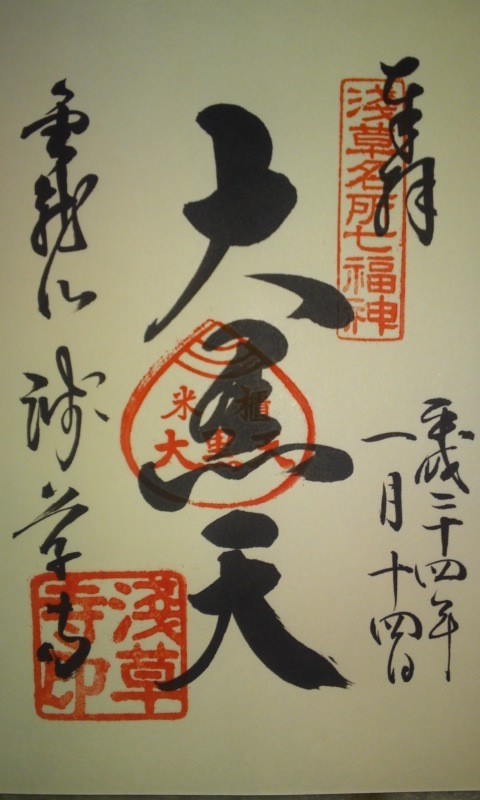 奉拝
浅草名所七福神
平成二十四年
一月十四日
大黒天
米櫃
大黒天
金龍山 浅草寺
浅草
寺印